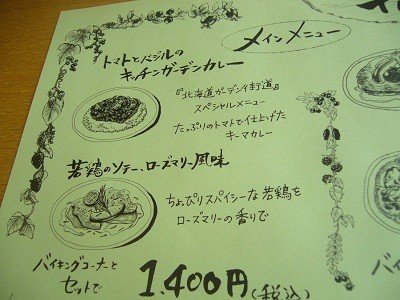 メインメニュー
トマトとバジルの
キッチンガーデンカレー
『北海道ガーデン街道』
スペシャルメニュー
たっぷりのトマトで仕上げた
キーマカレー
若鶏のソテー、ローズマリー風味
ちょっぴりスパイシーな若鶏を
ローズマリーの香りで
バイキングコーナーと
セットで
1,400円(税込)